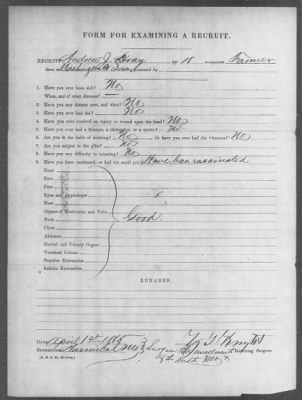 FORM FOR EXAMINING A RECRUIT.
RECRUIT Andrew J. Gray age 18 occupation Farmer
born in Washington Co Iowa, presented by
1. Have you ever been sick? No
When, and of what disease?
2. Have you any disease now, and what? No
3. Have you ever had fits? No
4. Have you ever received an injury or wound upon the head? No
5. Have you ever had a fracture, a dislocation, or a sprain? No
6. Are you in the habit of drinking? No Or have you ever had the "horrors?" No
7. Are you subject to the piles? No
8. Have you any difficulty in urinating? No
9. Have you been vaccinated, or had the small pox? Have been vaccinated
Head
Face
Eyes and Appendages
Nose
Organs of Mastication and Voice
Neck
Good
Chest
Abdomen
Genital and Urinary Organs
Vertebral Column
Superior Extremities
Inferior Extremities
REMARKS.
Date April 1st 1865
Hannibal Mo
Surgeon
Inspecting Surgeon
8th Dist Mo